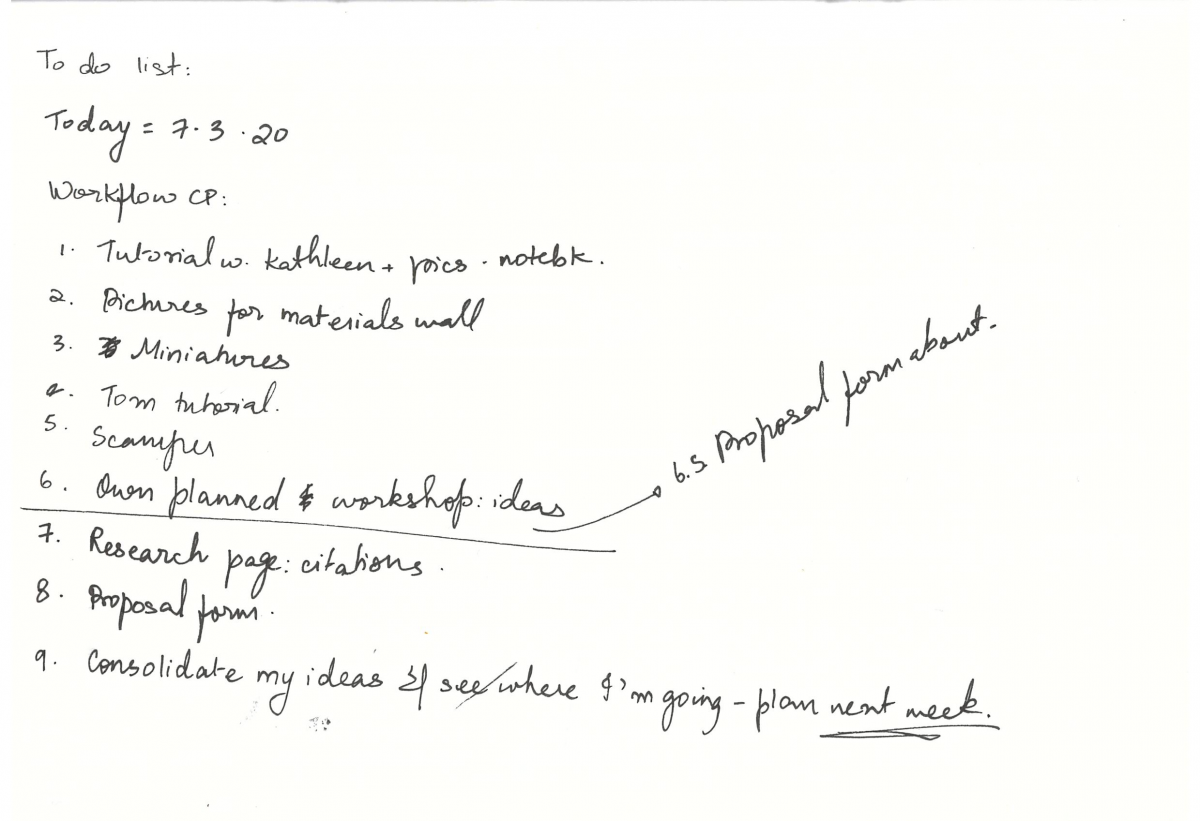 To do list:
Today = 7.3.20
Workflow CP:
1. Tutorial w. Kathleen + pics. notebk.
2. Pictures for materials wall
3. Miniatures
4. Tom tutorial.
5. Scamper
6. Own planned & workshop: ideas
6.5 Proposal form about.
7. Research page: citations.
8. Proposal form.
9. Consolidate my ideas & see where I'm going - plan next week.